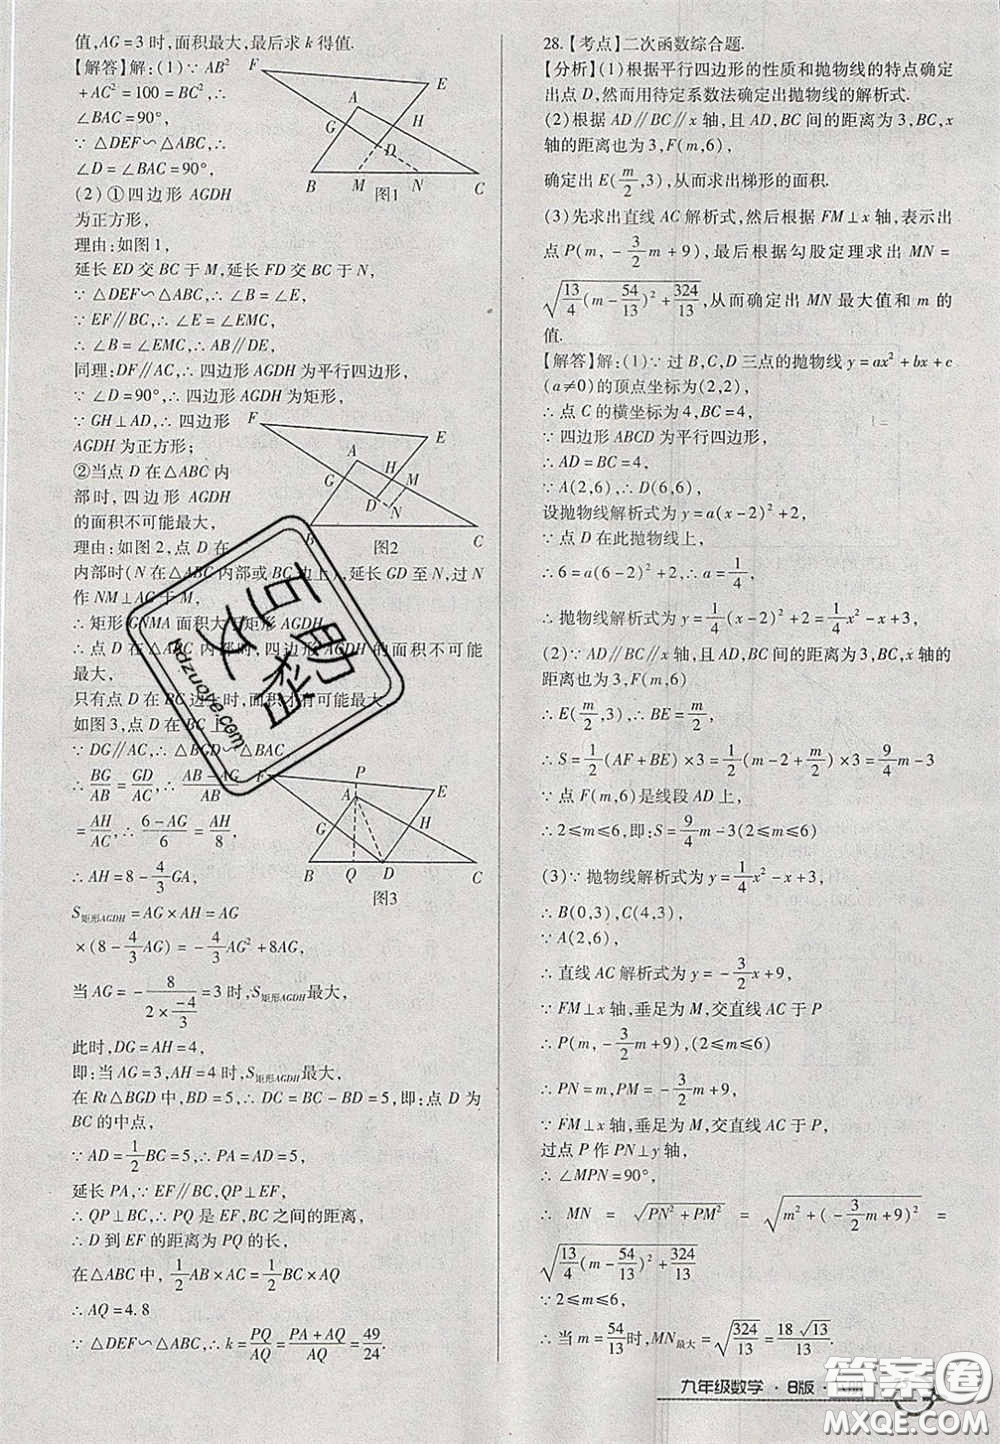 值,AG=3时,面积最大,最后求k得值.
【解答】解:(1)∵AB²
+AC²=100=BC²,∴
∠BAC=90°,
∵△DEF∽△ABC,∴
∠D=∠BAC=90°,
(2)①四边形AGDH
为正方形,
理由:如图1,
延长ED交BC于M,延长FD交BC于N,
∵△DEF∽△ABC,∴∠B=∠E,
∵EF∥BC,∴∠E=∠EMC,
∴∠B=∠EMC,∴AB∥DE,
同理:DF∥AC,∴四边形AGDH为平行四边形,
∵∠D=90°,∴四边形AGDH为矩形,
∵GH⊥AD,∴四边形
AGDH为正方形;
②当点D在△ABC内
部时,四边形AGDH
的面积不可能最大,
理由:如图2,点D在
内部时(N在△ABC内部或BC边上),延长GD至N,过N
作NM⊥AC于M,
∴矩形GNMA面积大于矩形AGDH,
∴点D在△ABC内部时,四边形AGDH的面积不可能
最大,
只有点D在BC边上时,面积才有可能最大,
如图3,点D在BC上,
∵DG∥AC,∴△BGD∽△BAC,
∴BG/AB=GD/AC,∴(AB-AG)/AB
=AH/AC,∴(6-AG)/6=AH/8,
∴AH=8-4/3GA,
S矩形AGDH=AG×AH=AG
×(8-4/3AG)=-4/3AG²+8AG,
当AG=-8/(2×(-4/3))=3时,S矩形AGDH最大,
此时,DG=AH=4,
即:当AG=3,AH=4时,S矩形AGDH最大,
在Rt△BGD中,BD=5,∴DC=BC-BD=5,即:点D为
BC的中点,
∵AD=1/2BC=5,∴PA=AD=5,
延长PA,∵EF∥BC,QP⊥EF,
∴QP⊥BC,∴PQ是EF,BC之间的距离,
∴D到EF的距离为PQ的长,
在△ABC中,1/2AB×AC=1/2BC×AQ
∴AQ=4.8
∵△DEF∽△ABC,∴k=PQ/AQ=(PA+AQ)/AQ=49/24.
F
A
E
G
H
D
B
M
N
C
图1
F
E
A
G
M
H
D
N
B
C
图2
F
P
E
A
G
H
B
Q
D
C
图3
28.【考点】二次函数综合题.
【分析】(1)根据平行四边形的性质和抛物线的特点确定
出点D,然而用待定系数法确定出抛物线的解析式.
(2)根据AD∥BC∥x轴,且AD,BC间的距离为3,BC,x
轴的距离也为3,F(m,6),
确定出E(m/2,3),从而求出梯形的面积.
(3)先求出直线AC解析式,然后根据FM⊥x轴,表示出
点P(m,-3/2m+9),最后根据勾股定理求出MN=
√(13/4(m-54/13)²+324/13),从而确定出MN最大值和m的
值.
【解答】解:(1)∵过B,C,D三点的抛物线y=ax²+bx+c
(a≠0)的顶点坐标为(2,2),
∴点C的横坐标为4,BC=4,
∵四边形ABCD为平行四边形,
∴AD=BC=4,
∵A(2,6),∴D(6,6),
设抛物线解析式为y=a(x-2)²+2,
∵点D在此抛物线上,
∴6=a(6-2)²+2,∴a=1/4,
∴抛物线解析式为y=1/4(x-2)²+2=1/4x²-x+3,
(2)∵AD∥BC∥x轴,且AD,BC间的距离为3,BC,x轴的
距离也为3,F(m,6)
∴E(m/2,3),∴BE=m/2,
∴S=1/2(AF+BE)×3=1/2(m-2+m/2)×3=9/4m-3
∵点F(m,6)是线段AD上,
∴2≤m≤6,即:S=9/4m-3(2≤m≤6)
(3)∵抛物线解析式为y=1/4x²-x+3,
∴B(0,3),C(4,3),
∵A(2,6),
∴直线AC解析式为y=-3/2x+9,
∵FM⊥x轴,垂足为M,交直线AC于P
∴P(m,-3/2m+9),(2≤m≤6)
∴PN=m,PM=-3/2m+9,
∵FM⊥x轴,垂足为M,交直线AC于P,
过点P作PN⊥y轴,
∴∠MPN=90°,
∴MN=√(PN²+PM²)=√(m²+(-3/2m+9)²)=
√(13/4(m-54/13)²+324/13)
∵2≤m≤6,
∴当m=54/13时,MN最大=√(324/13)=18√13/13.
九年级数学·B版·
互助文档
kdzuoye.com
答案圈
MXQE.COM